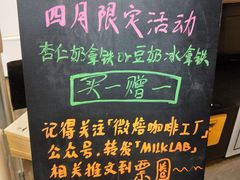 四月限定活动
杏仁奶拿铁 or 豆奶冰拿铁
买一赠一
记得关注「微焙咖啡工厂」
公众号，转发「MILKLAB」
相关推文到票圈~~